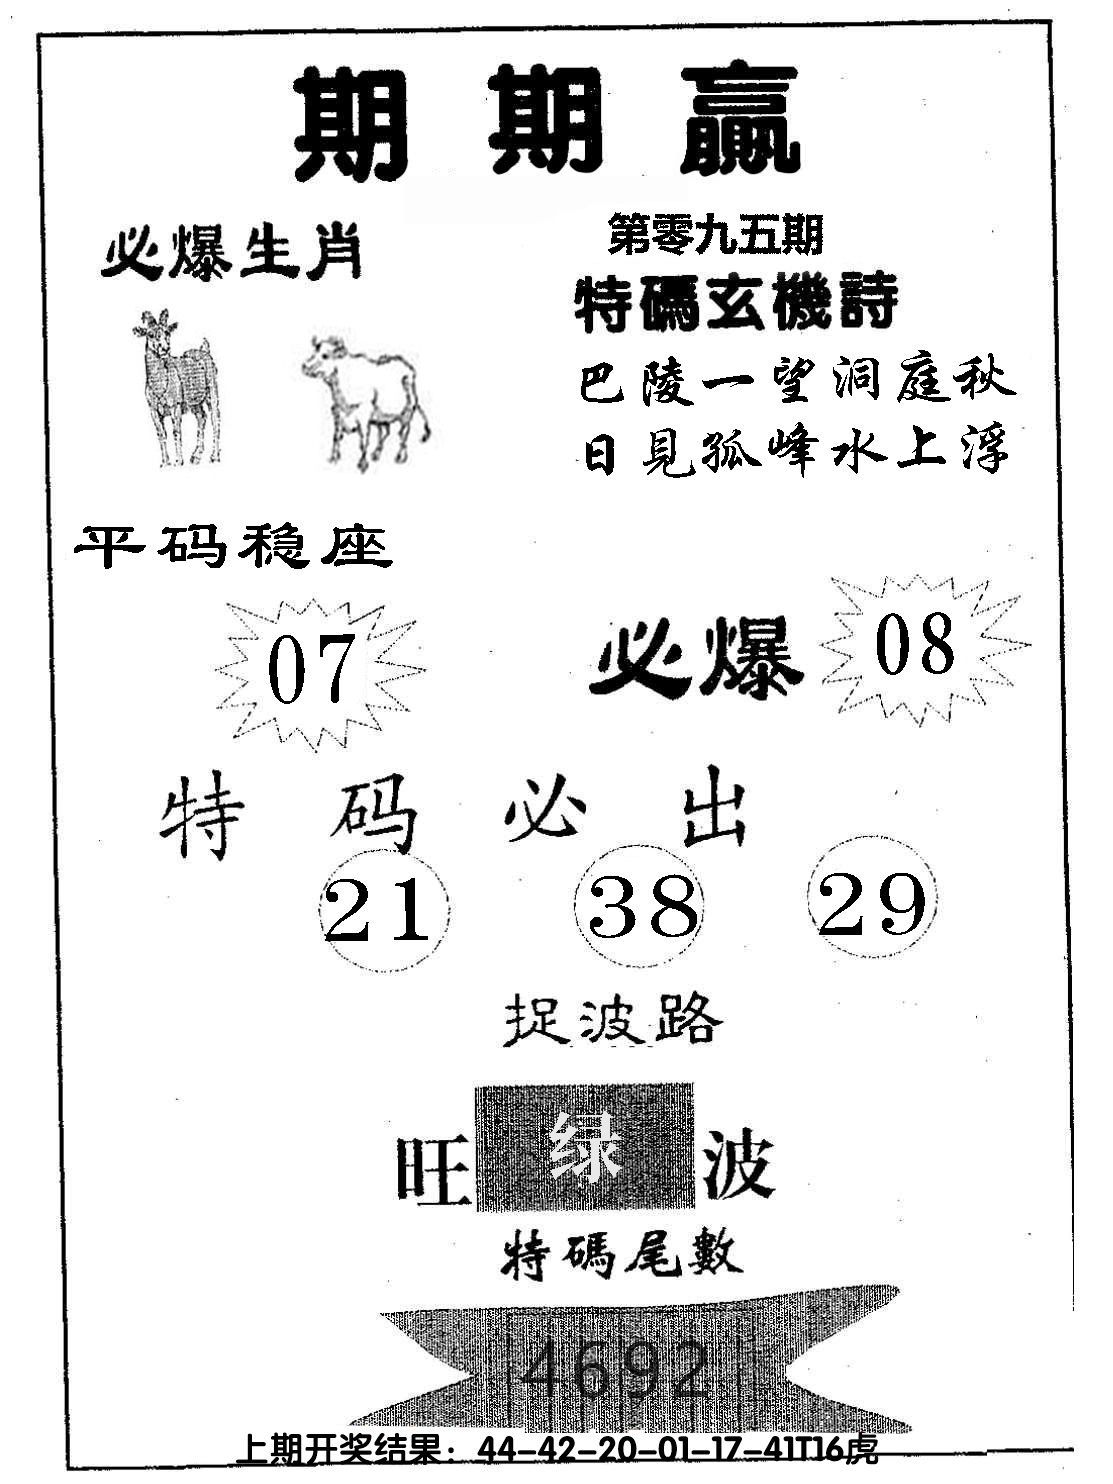 期期赢
必爆生肖
第零九五期
特碼玄機詩
巴陵一望洞庭秋
日見孤峰水上浮
平码稳座
07
必爆
08
特码必出
21 38 29
捉波路
旺绿波
特碼尾數
4692
上期开奖结果：44-42-20-01-17-41T16虎